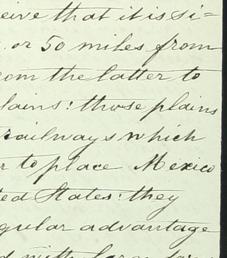 ceive that it is si=
or 50 miles from
rom the latter to
plains: those plains
railways which
r to place Mexico
ted States: they
gular advantage
d with large